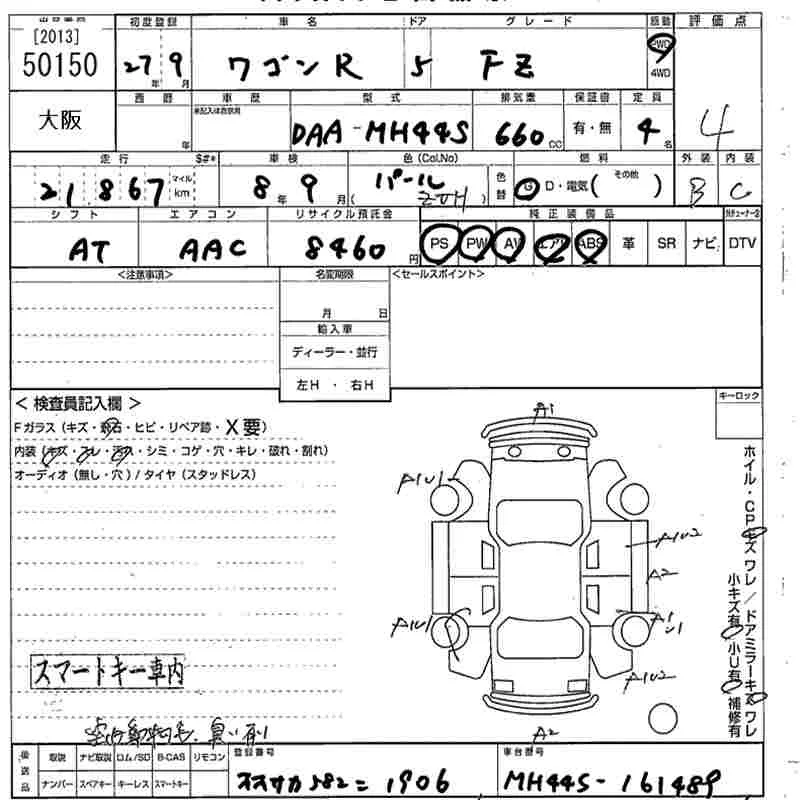 出品番号 初度登録 車名 ドア グレード 駆動 評価点
[2013]
50150 27年9月 ワゴンR 5 FZ 2WD 4WD
西暦 年 車歴 型式 排気量 保証書 定員
※記入は自家用
大阪 DAA-MH44S 660cc 有・無 4名 4
走行 $#* 車検 色(Col,No) 色替 燃料 外装 内装
21,867 マイル km 8年9月 (パール ZVH) G D・電気( その他 ) B C
シフト エアコン リサイクル預託金 純正装備品
AT AAC 8460円 PS PW AW エアB ABS 革 SR ナビ DTV
<注意事項> 名変期限 <セールスポイント>
月 日
輸入車
ディーラー・並行
左H・右H
<検査員記入欄> キーロック
Fガラス(キズ・飛石・ヒビ・リペア跡・X要)
内装(キズ・スレ・汚れ・シミ・コゲ・穴・キレ・破れ・割れ)
オーディオ(無し・穴)/タイヤ(スタッドレス)
A1
A1U1
A1U2
A2
A1U1
A1
U1
A1U2
A2
ホイル・CPキズ ワレ/ドアミラーキズ ワレ
小キズ有 小U有 補修有
スマートキー車内
臭い有
後送品 取説 ナビ取説 ロム/SD B-CAS リモコン 登録番号 車台番号
ナンバー スペアキー キーレス スマートキー オオサカ582ニ1906 MH44S-161489